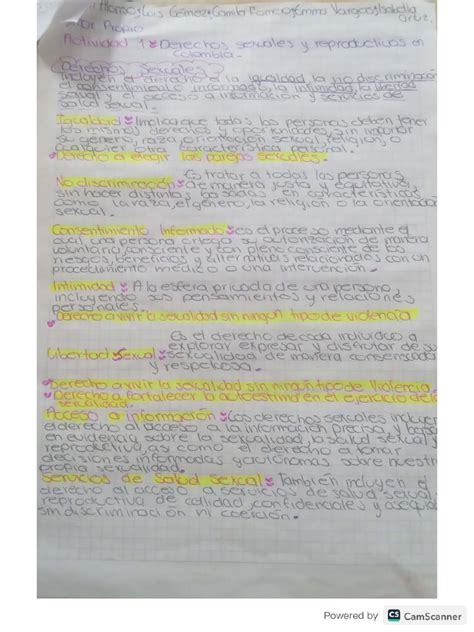 Luis Gómez, Camila Romero, Emma Vargas, Isabella
Ortiz.
Propio
Actividad 1: Derechos sexuales y reproductivos en
Colombia.
Derechos Sexuales
Incluyen el derecho a la igualdad, la no discriminación
el consentimiento informado, la intimidad, la libertad
sexual y el acceso a información y servicios de
salud sexual.
Igualdad: Implica que todas las personas deben tener
los mismos derechos y oportunidades, sin importar
su género, raza, orientación sexual, religión o
cualquier otra característica personal.
Derecho a elegir las parejas sexuales.
No discriminación: Es tratar a todas las personas
de manera justa y equitativa,
sin hacer distinciones basadas en características
como la raza, el género, la religión o la orientación
sexual.
Consentimiento Informado: es el proceso mediante el
cual una persona otorga su autorización de manera
voluntaria, consciente y con pleno conocimiento de los
riesgos, beneficios y alternativas relacionados con un
procedimiento médico o una intervención.
Intimidad: A la esfera privada de una persona,
incluyendo sus pensamientos y relaciones
personales.
Derecho a vivir la sexualidad sin ningún tipo de violencia
Es el derecho de cada individuo a
explorar, expresar y disfrutar de su
Libertad Sexual: sexualidad de manera consensuada
y respetuosa.
Derecho a vivir la sexualidad sin ningún tipo de violencia.
Derecho a fortalecer la autoestima en el ejercicio de la
sexualidad.
Acceso a Información: Los derechos sexuales incluyen
el derecho al acceso a la información precisa y basada
en evidencia sobre la sexualidad, la salud sexual y
reproductiva, así como el derecho a tomar
decisiones informadas y autónomas sobre nuestra
propia sexualidad.
Servicios de Salud Sexual: También incluyen el
derecho al acceso a servicios de salud sexual
reproductiva de calidad, confidenciales y asequibles
sin discriminación ni coerción.
Powered by CS CamScanner